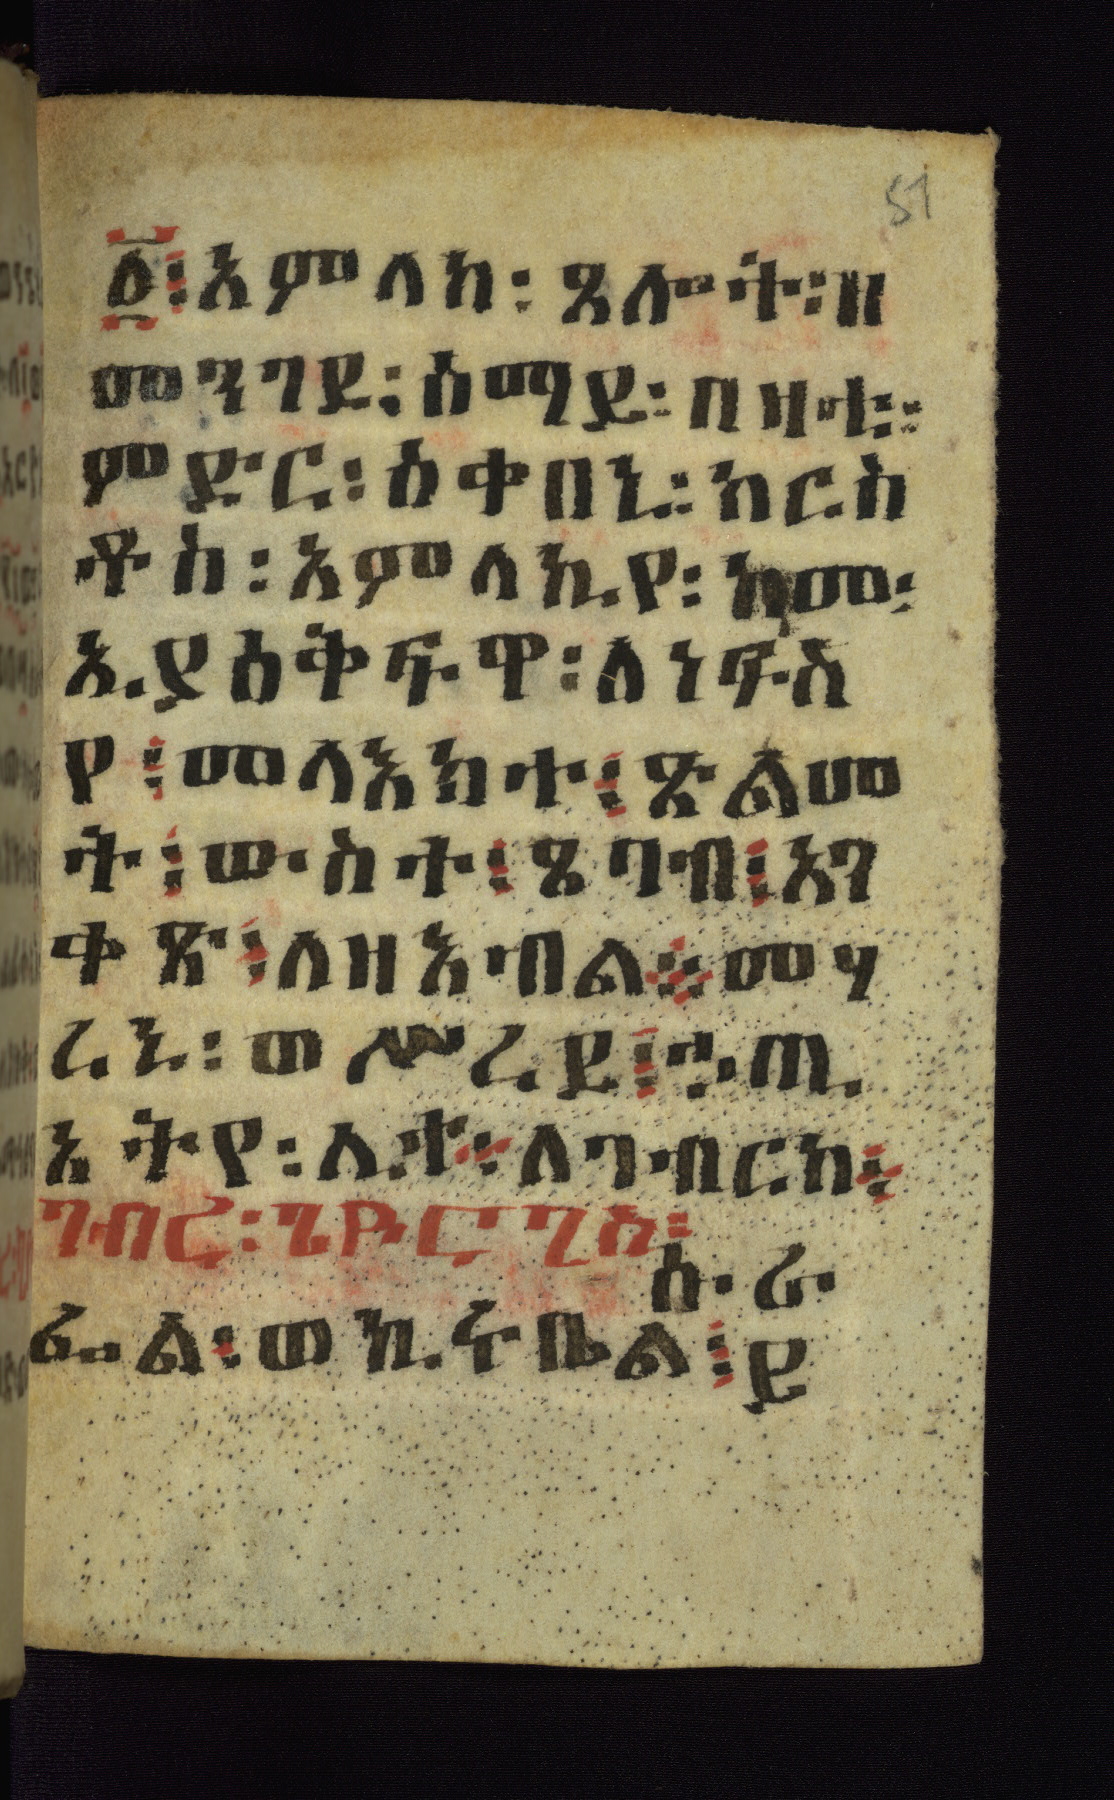 51
፩፡ አምላክ፡ ጸሎት፡ ዘ
መንገደ፡ ሰማይ፡ በዛቲ፡
ምድር፡ ዕቀበኒ፡ ክርስ
ቶስ፡ አምላኪየ፡ ከመ፡
ኢያዕቅፍዋ፡ ለነፍስ
የ፡ መላእክተ፡ ጽልመ
ት፡ ውስተ፡ ጸባብ፡ አን
ቀጽ፡ ለዘእብል፡ መሃ
ረኒ፡ ወሥረይ፡ ኃጢ
አትየ፡ ሊተ፡ ለገብርከ፡
ገብረ፡ ጊዮርጊስ፡
ሱራ
ፌል፡ ወኪሩቤል፡ ይ